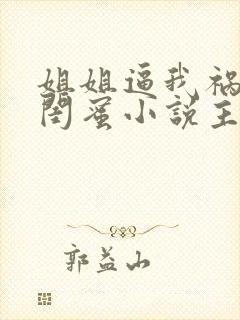 姐姐逼我祸
闺蜜小说主
郭益山